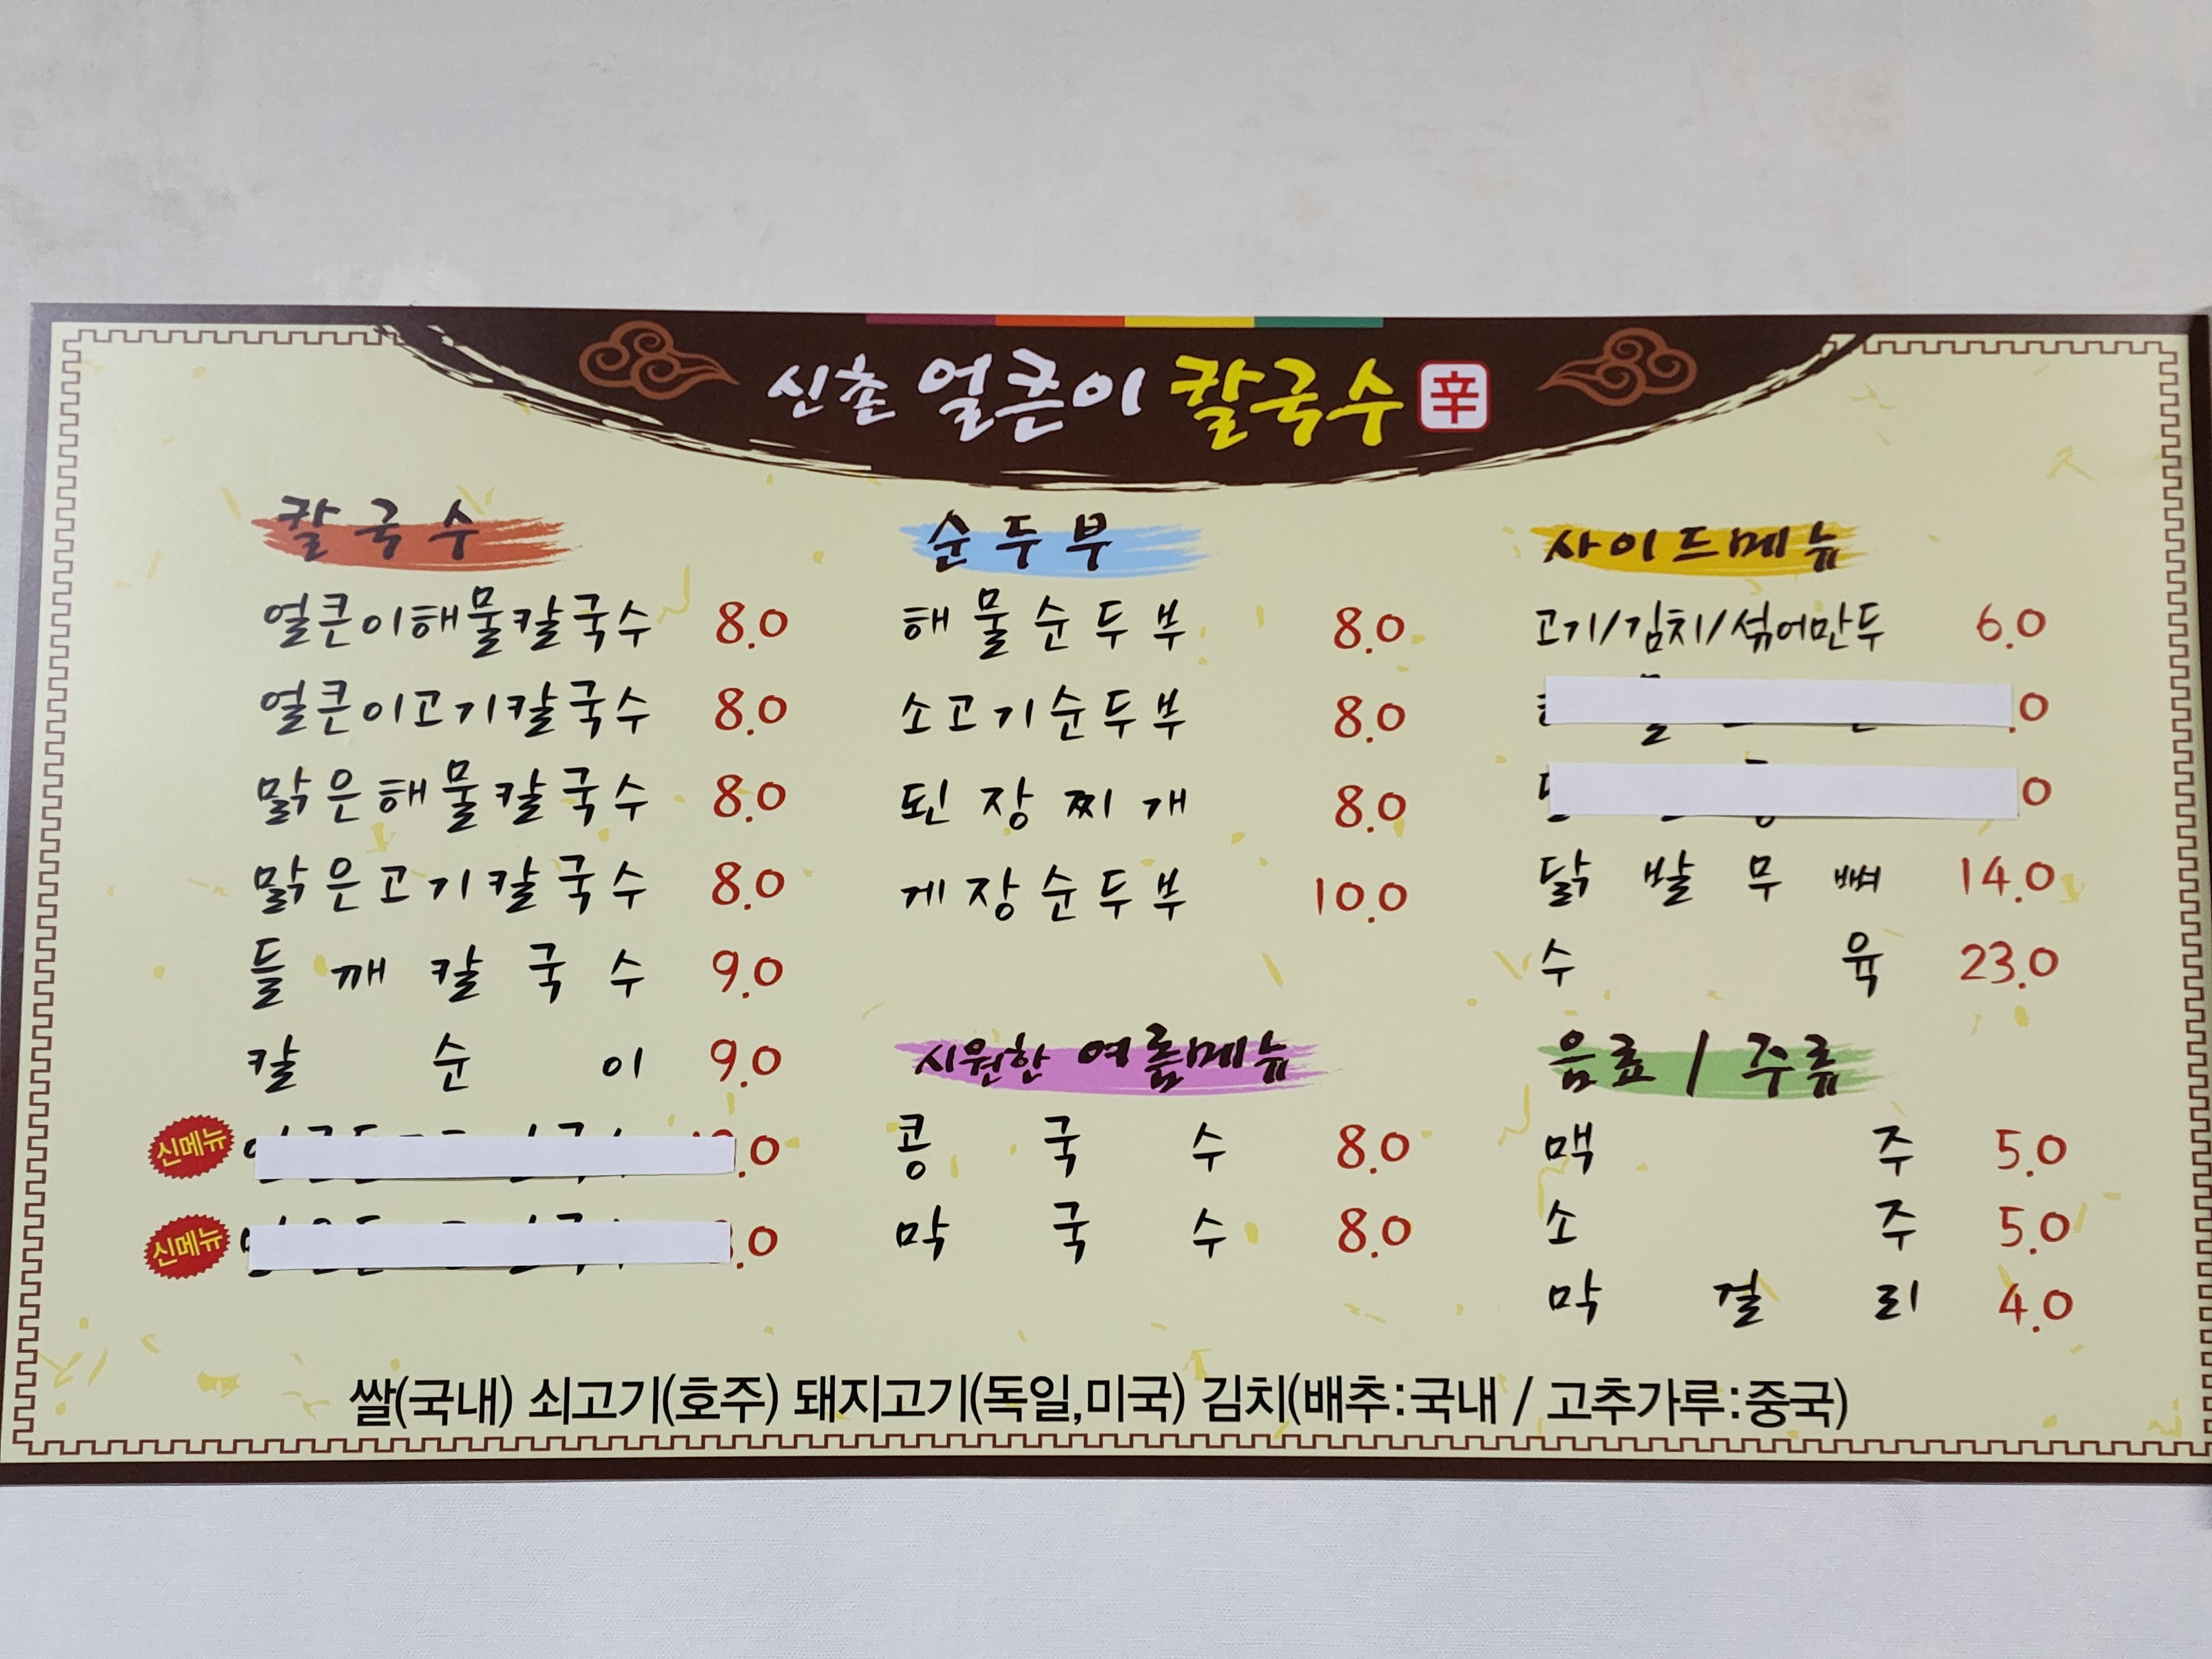 신촌 얼큰이 칼국수 辛
칼국수
얼큰이해물칼국수 8.0
얼큰이고기칼국수 8.0
맑은해물칼국수 8.0
맑은고기칼국수 8.0
들깨칼국수 9.0
칼순이 9.0
신메뉴
신메뉴
순두부
해물순두부 8.0
소고기순두부 8.0
된장찌개 8.0
게장순두부 10.0
시원한 여름메뉴
콩국수 8.0
막국수 8.0
사이드메뉴
고기/김치/섞어만두 6.0
닭발무뼈 14.0
수육 23.0
음료 / 주류
맥주 5.0
소주 5.0
막걸리 4.0
쌀(국내) 쇠고기(호주) 돼지고기(독일,미국) 김치(배추:국내 / 고추가루:중국)